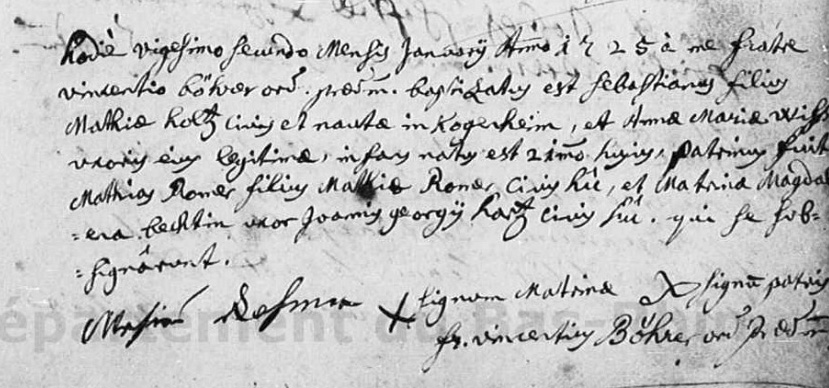 hodie vigesimo secundo Mensis Januarij Anno 1725 à me fratre
vincentio böhrer ord. prædm. baptizatus est sebastianus filius
Mathiæ holtz civis et nautæ in Kogenheim, et Annæ Mariæ
uxoris eius legitimæ, infans natus est 21mo huius, patrinus fuit
Mathias Romer filius Mathiæ Romer civis hic, et Matrina Magda
=ena bechtin uxor Joannis georgÿ civis hic. qui se sub=
=signârunt.
signum Matrinæ X signū patris
fr. vincentius Böhrer ord Præd
épartement du Bas-R